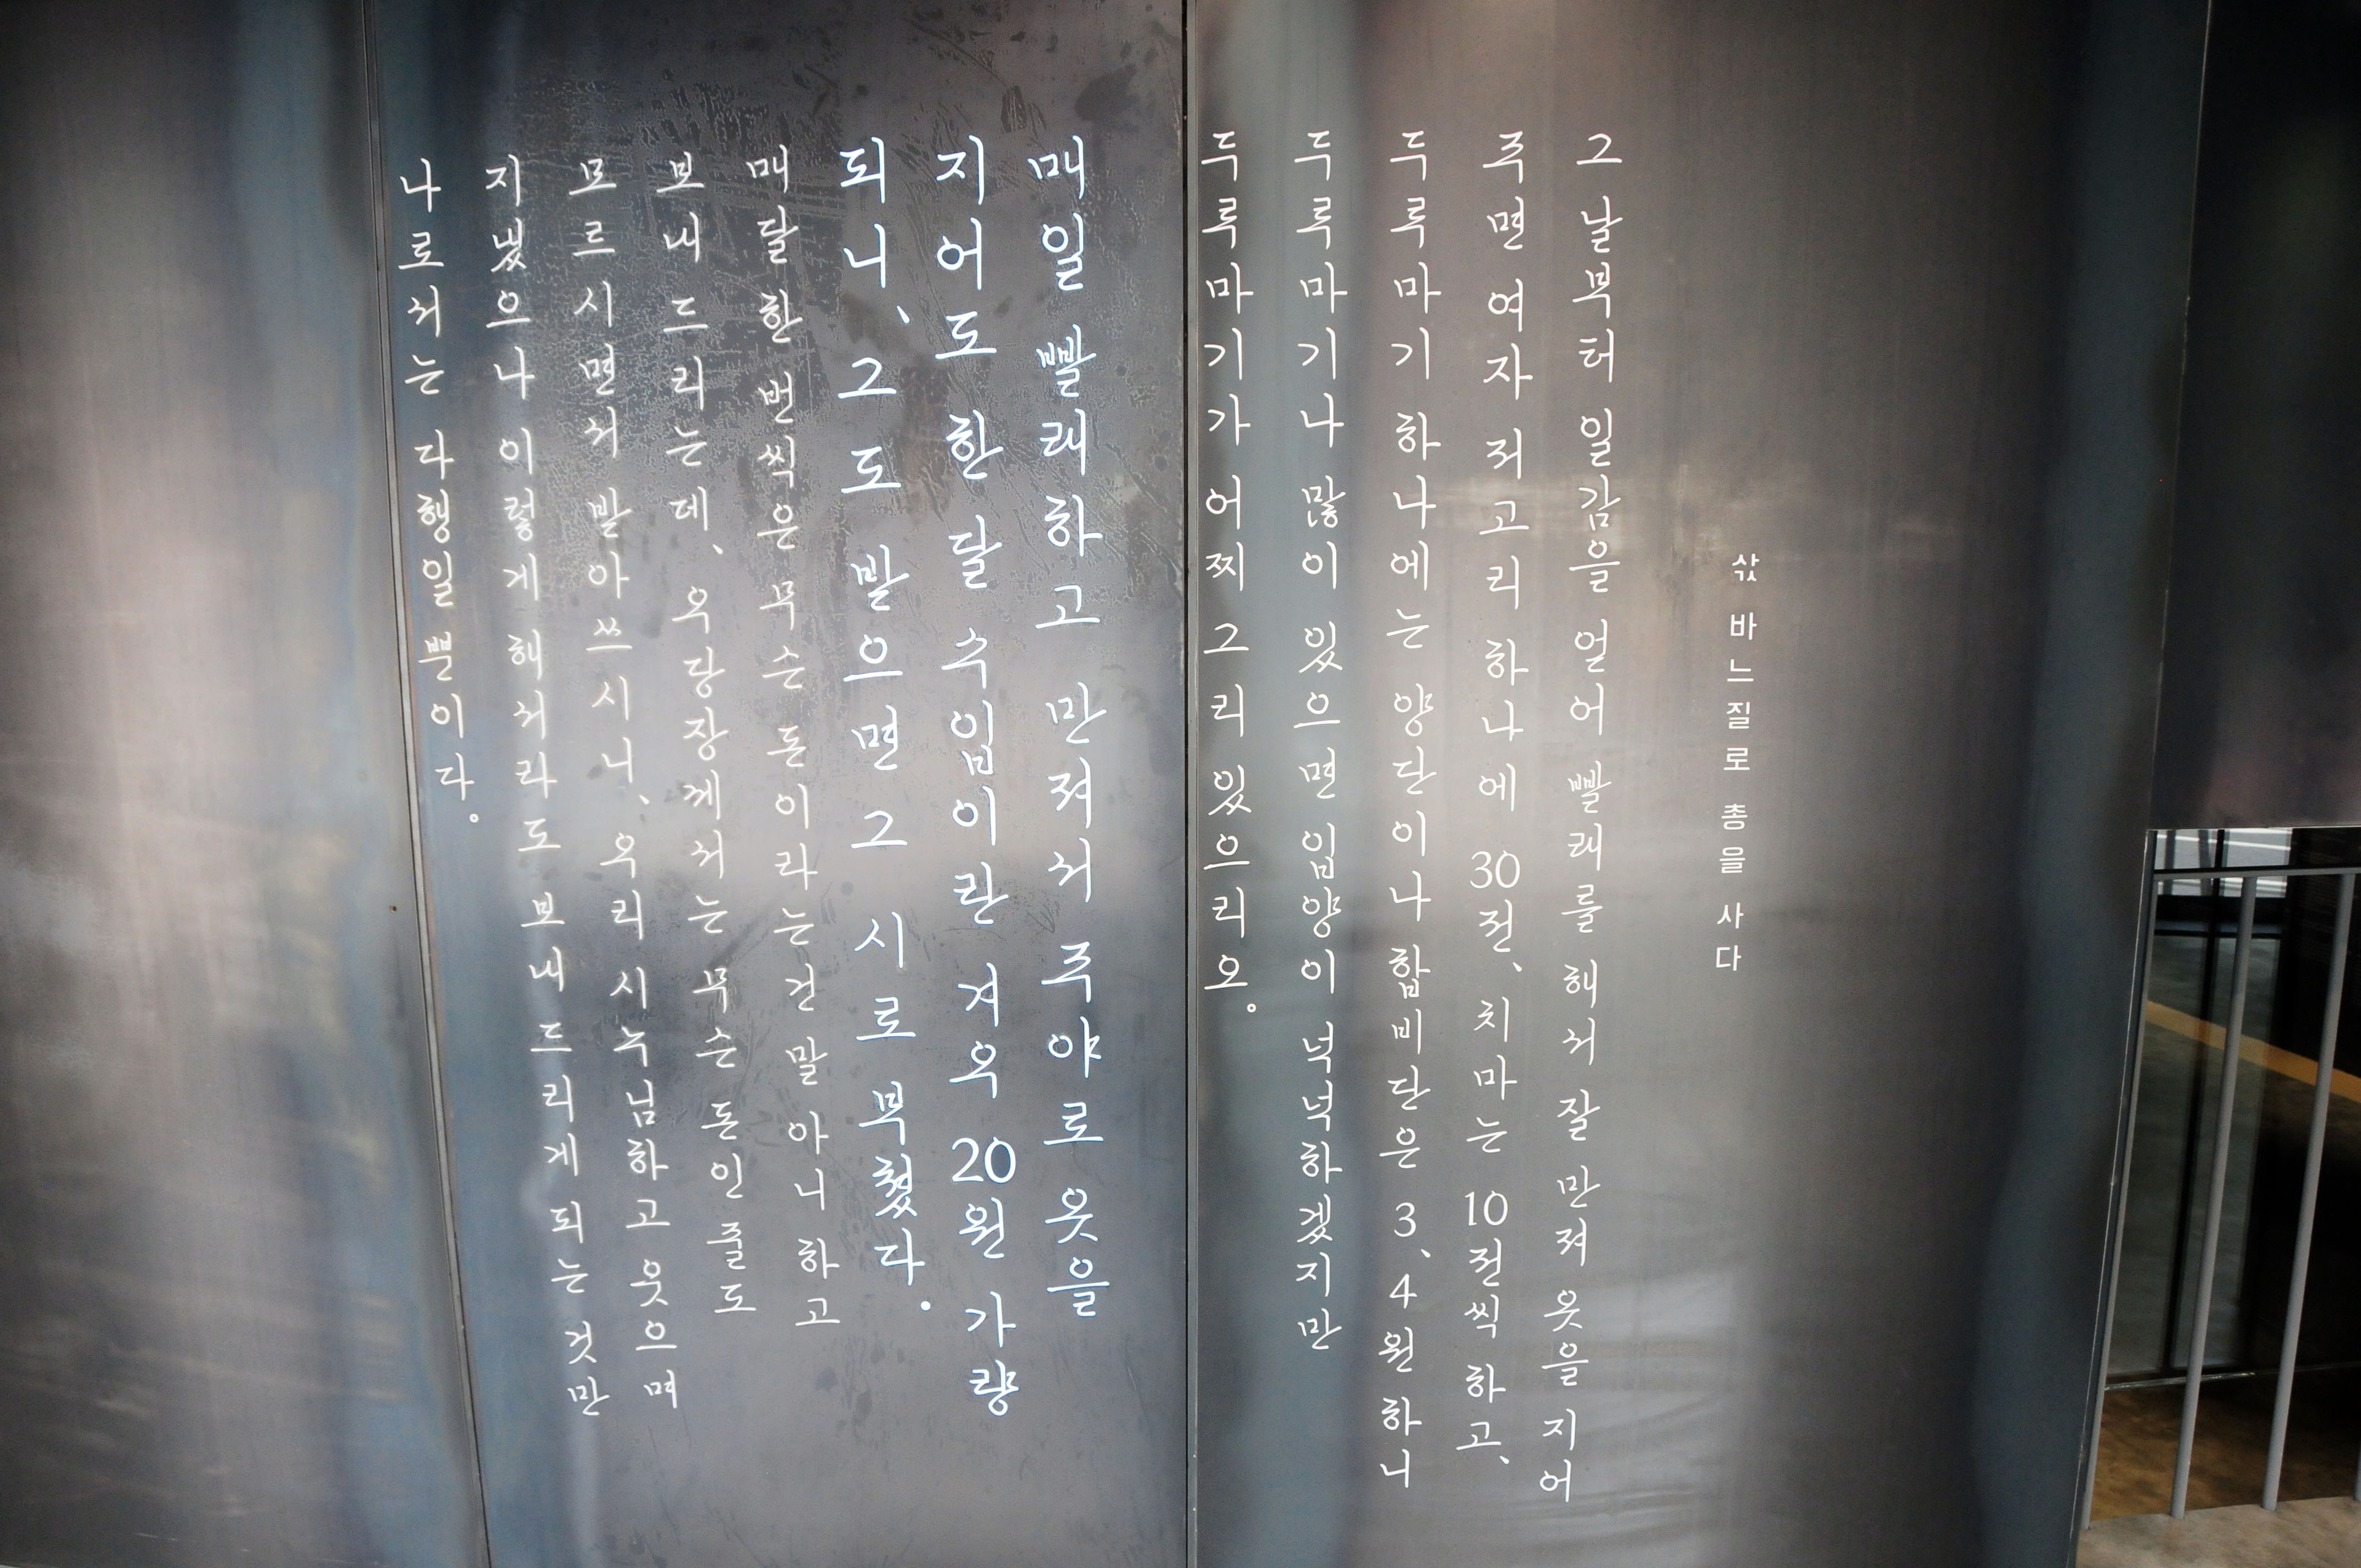 삯바느질로 총을 사다
그날부터 일감을 얻어 빨래를 해서 잘 만져 옷을 지어
주면 여자 저고리 하나에 30전, 치마는 10전씩 하고,
두루마기 하나에는 양단이나 합비단은 3, 4원 하니
두루마기나 많이 있으면 입양이 넉넉하겠지만
두루마기가 어찌 그리 있으리오.
매일 빨래하고 만져서 주야로 옷을
지어도 한 달 수입이란 겨우 20원 가량
되니, 그도 받으면 그 시로 부쳤다.
매달 한 번씩은 무슨 돈이라는 건 말 아니하고
보내 드리는데, 우당장께서는 무슨 돈인 줄도
모르시면서 받아 쓰시니, 우리 시누님하고 웃으며
지냈으나 이렇게 해서라도 보내 드리게 되는 것만
나로서는 다행일 뿐이다.